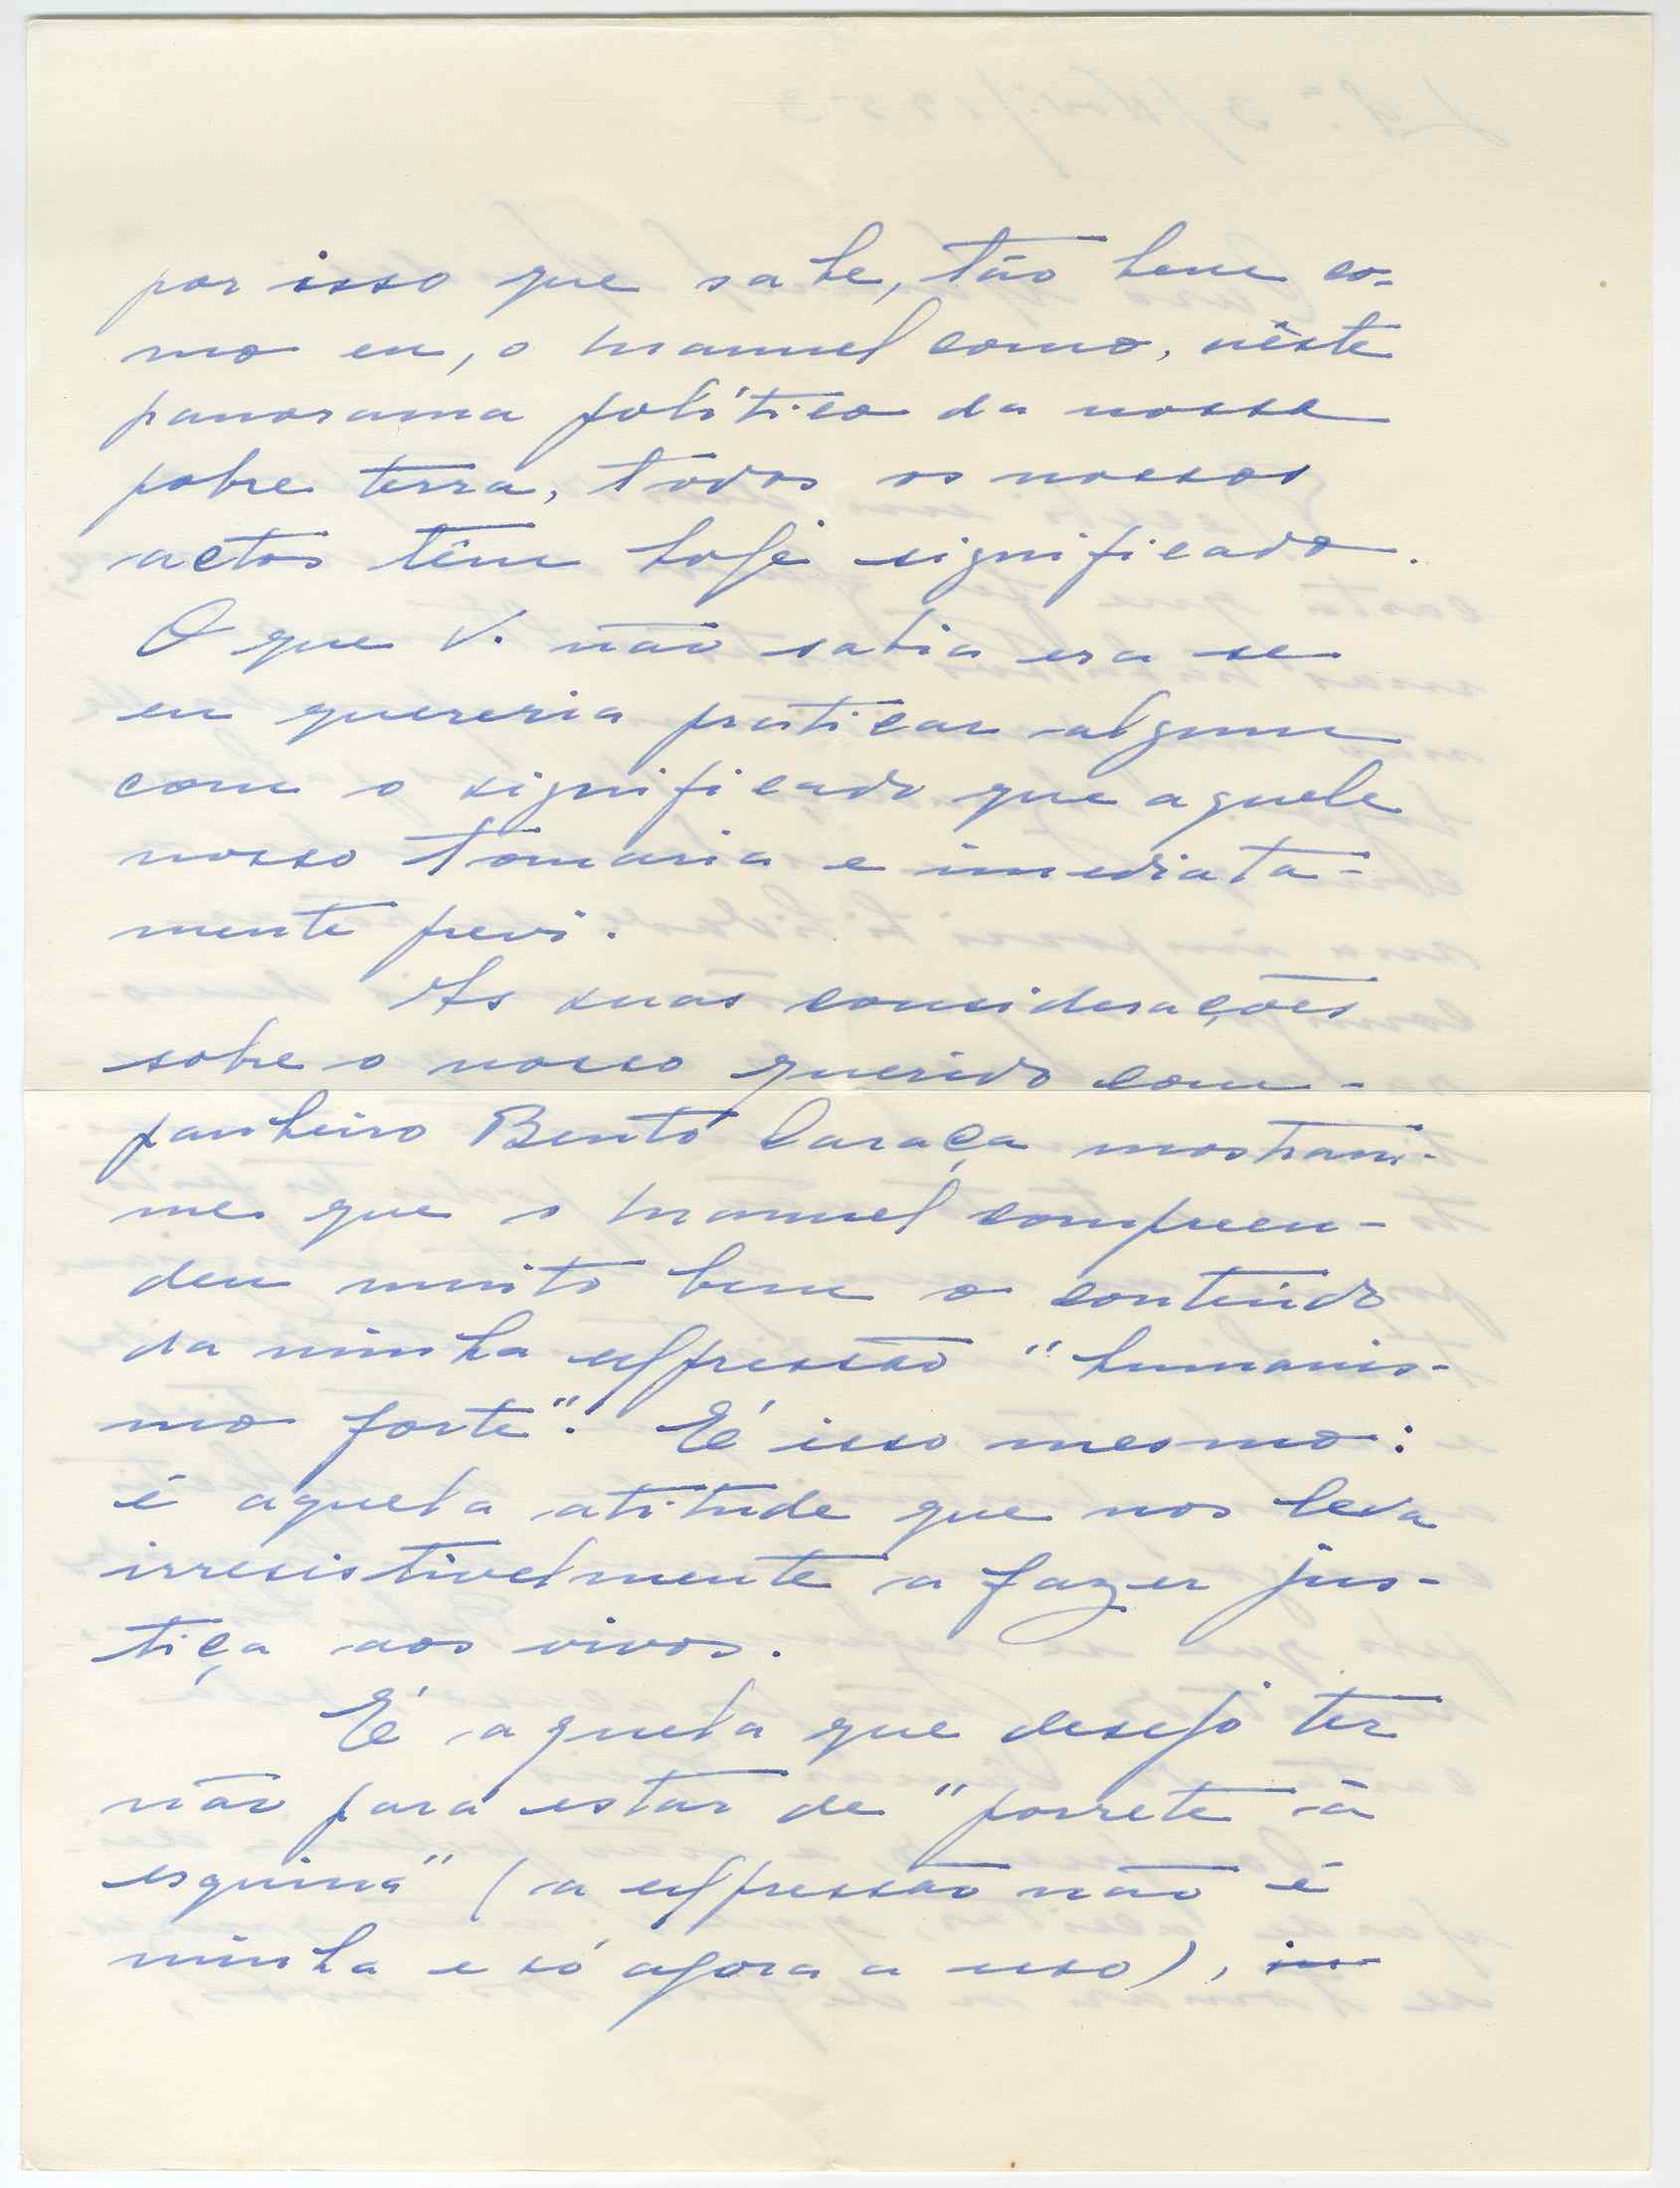 por isso que sabe, tão bem co-
mo eu, o Manuel como, nêste
panorama político da nossa
pobre terra, todos os nossos
actos têm hoje significado.
O que V. não sabia era se
eu quereria praticar algum
com o significado que aquele
nosso tomaria e imediata-
mente previ.
As suas considerações
sobre o nosso querido com-
panheiro Bento Caraça mostram-
me que o Manuel compreen-
deu muito bem o conteúdo
da minha expressão "humanis-
mo forte". É isso mesmo:
é aquela atitude que nos leva
irresistivelmente a fazer jus-
tiça aos vivos.
É aquela que desejo ter
não para estar de "porrete à
esquina" (a expressão não é
minha e só agora a uso),